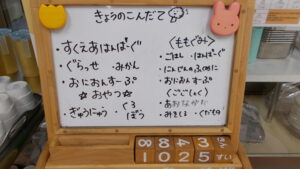 きょうのこんだて
・すくえあはんばーぐ
・ぐらっせ ・みかん
・おにおんすーぷ
☆おやつ☆
・ぎゅうにゅう ・くろぼう
〈ももぐみ〉
・ごはん ・はんばーぐ
・にんじんのふくめに
・おにおんすーぷ
〈ごごしょく〉
・くだもの
8 8 4 3
1 0 2 5 すい